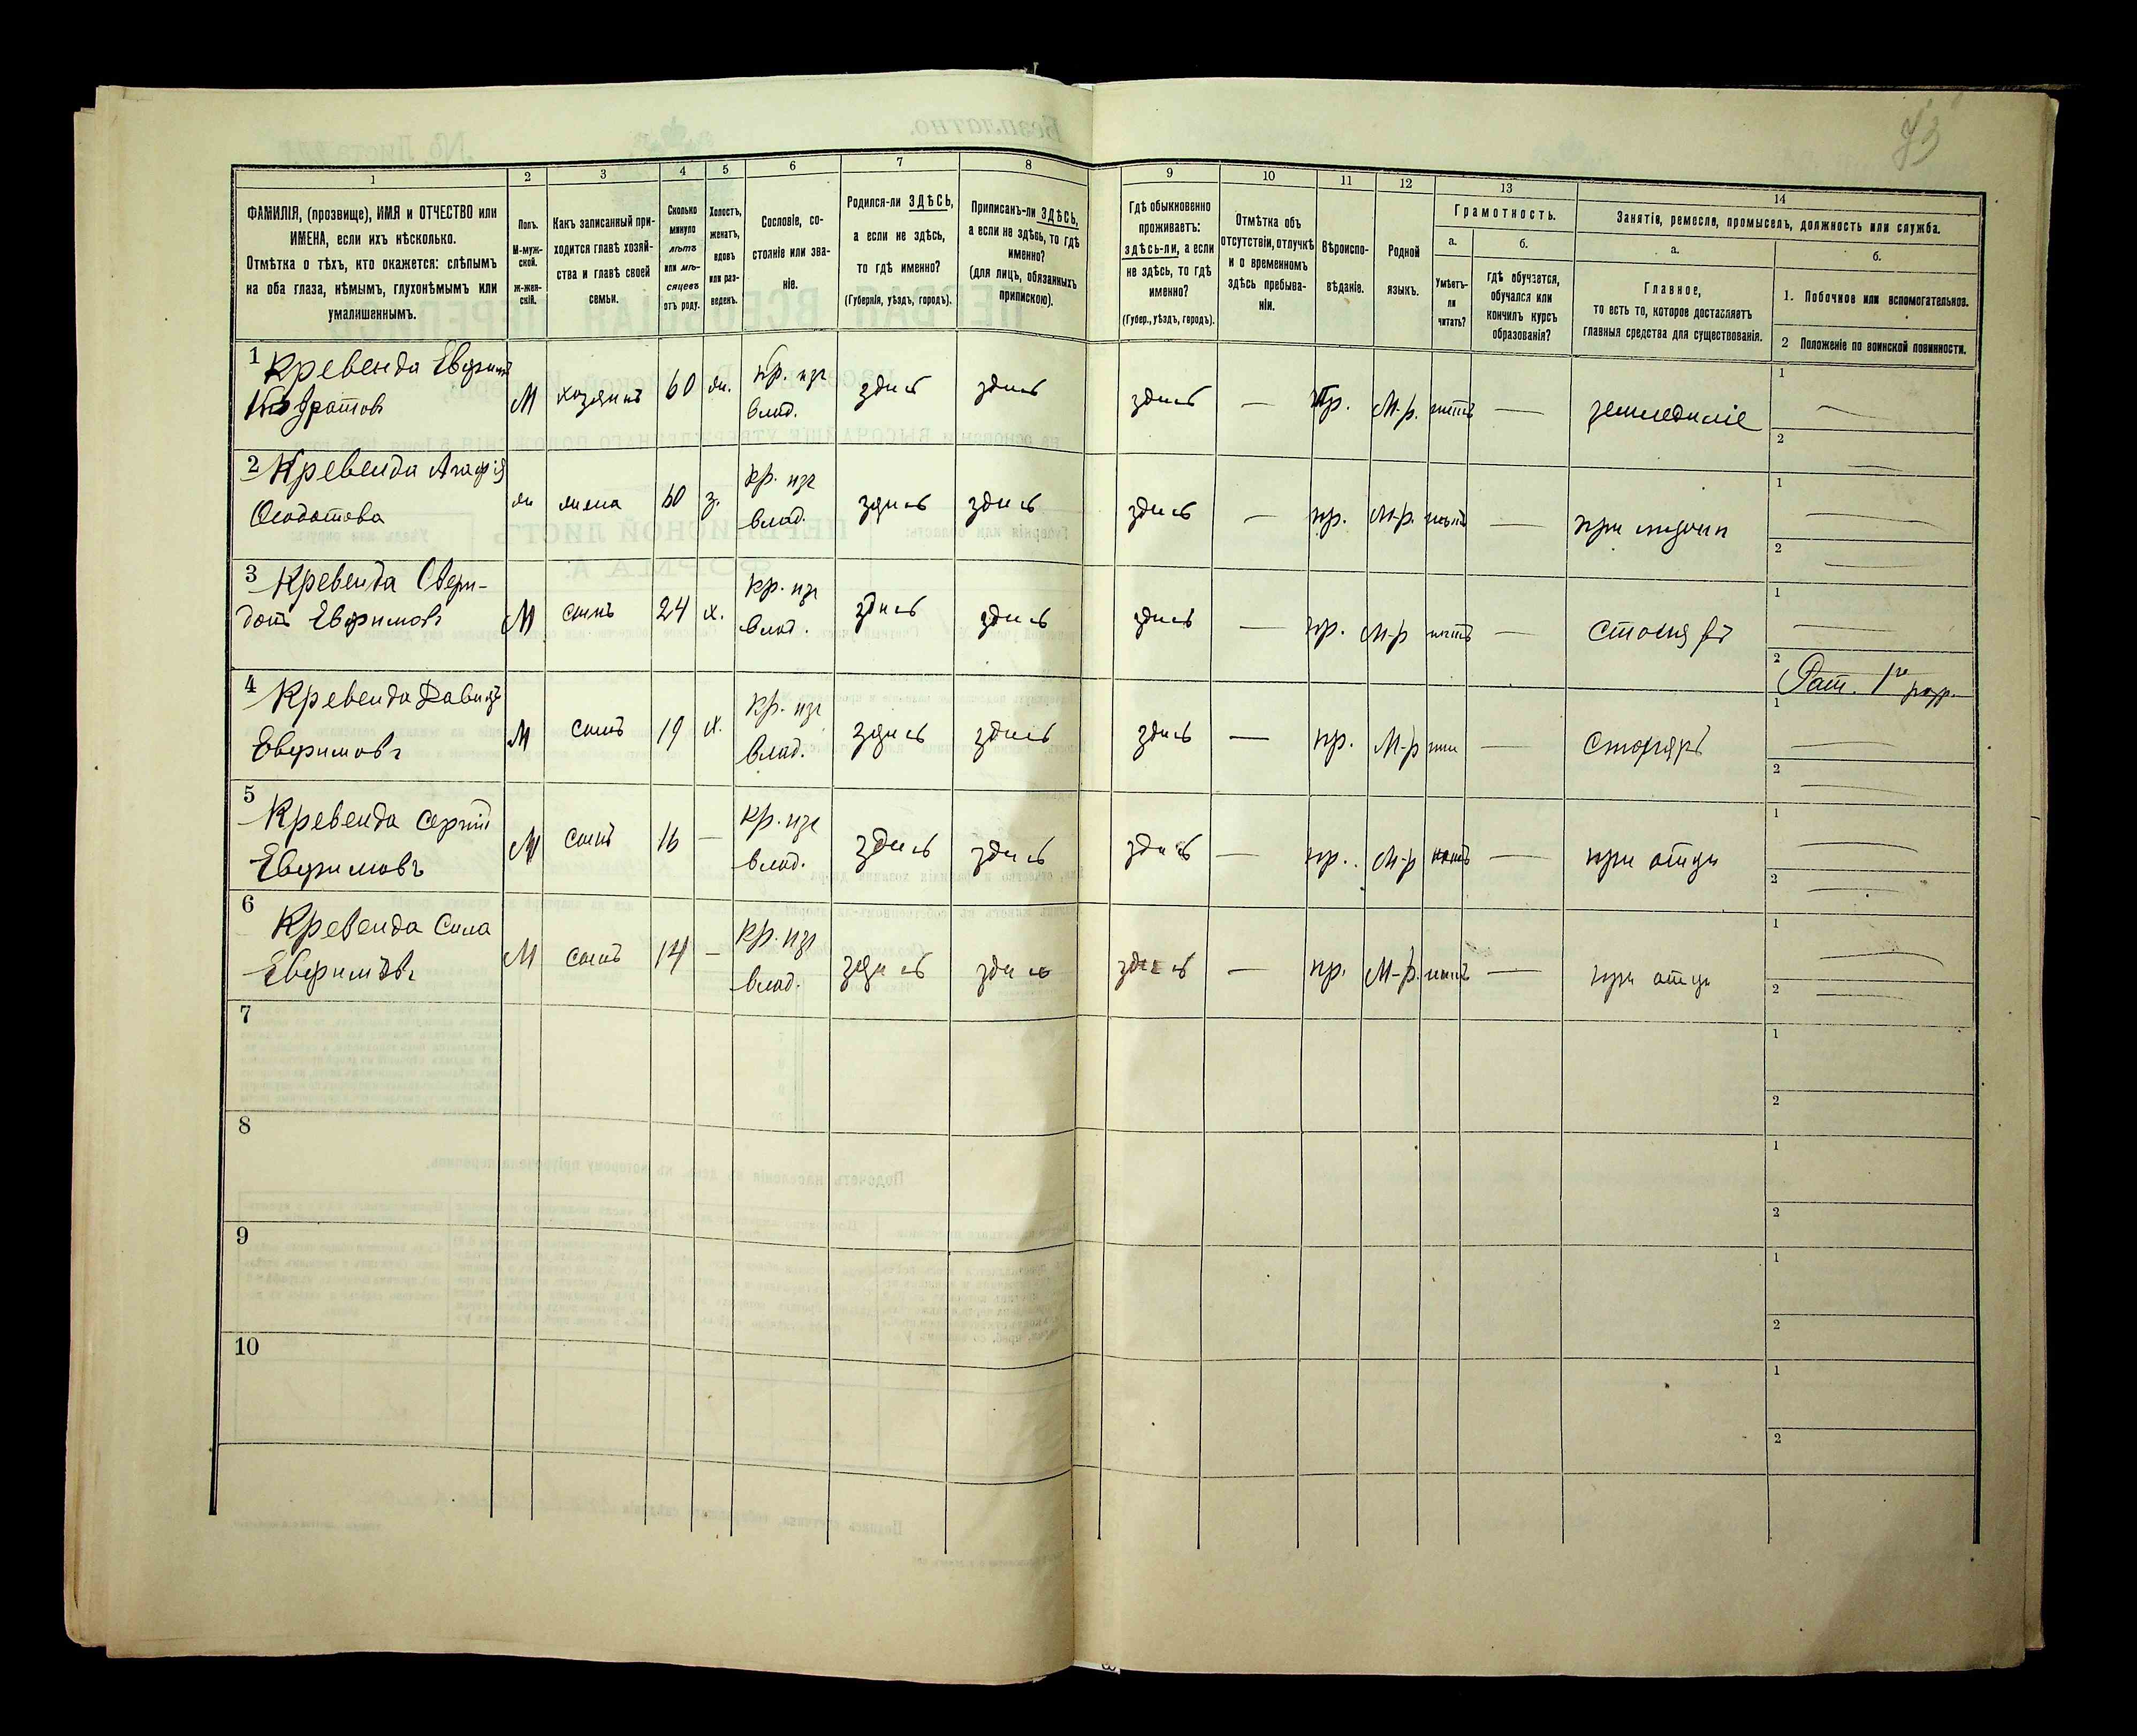 43
1
2
3
4
5
6
7
8
9
10
11
12
13
14
ФАМИЛІЯ, (прозвище), ИМЯ и ОТЧЕСТВО или
ИМЕНА, если ихъ нѣсколько.
Отмѣтка о тѣхъ, кто окажется: слѣпымъ
на оба глаза, нѣмымъ, глухонѣмымъ или
умалишеннымъ.
Полъ.
М-муж-
ской.
Ж-жен-
скій.
Какъ записанный при-
ходится главѣ хозяй-
ства и главѣ своей
семьи.
Сколько
минуло
лѣтъ
или мѣ-
сяцевъ
отъ роду.
Холостъ,
женатъ,
вдовъ
или раз-
веденъ.
Сословіе, со-
стояніе или зва-
ніе.
Родился-ли ЗДѢСЬ,
а если не здѣсь,
то гдѣ именно?
(Губернія, уѣздъ, городъ).
Приписанъ-ли ЗДѢСЬ,
а если не здѣсь, то гдѣ
именно?
(для лицъ, обязанныхъ
припискою).
Гдѣ обыкновенно
проживаетъ:
здѣсь-ли, а если
не здѣсь, то гдѣ
именно?
(Губер., уѣздъ, городъ).
Отмѣтка объ
отсутствіи, отлучкѣ
и о временномъ
здѣсь пребыва-
ніи.
Вѣроиспо-
вѣданіе.
Родной
языкъ.
Грамотность.
а.
Умѣетъ-
ли
читать?
б.
гдѣ обучается,
обучался или
кончилъ курсъ
образованія?
Занятіе, ремесло, промыселъ, должность или служба.
а.
Главное,
то есть то, которое доставляетъ
главныя средства для существованія.
б.
1. Побочное или вспомогательное.
2 Положеніе по воинской повинности.
1 Кревенда
М хозяинъ 60 ж. кр. изъ влад. здись здись здись — Пр. М-р. нитъ — земледиліе
1
2
2 Кревенда Агафія
ж жена 60 з. кр. изъ влад. здись здись здись — пр. М-р. нитъ —
1
2
3 Кревенда Свери-
донъ Евфимовъ
М синъ 24 х. кр. изъ влад. здись здись здись — пр. М-р нитъ — столяръ
1
2 Рат. 1го разр.
4 Кревенда Давидъ
Евфимовъ
М синъ 19 х. кр. изъ влад. здись здись здись — пр. М-р — столяръ
1
2
5 Кревенда Сергій
Евфимовъ
М синъ 16 — кр. изъ влад. здись здись здись — пр. М-р нитъ — при отци
1
2
6 Кревенда Сила
Евфимовъ
М синъ 14 — кр. изъ влад. здись здись здись — пр. М-р. нитъ — при отци
1
2
7
1
2
8
1
2
9
1
2
10
1
2